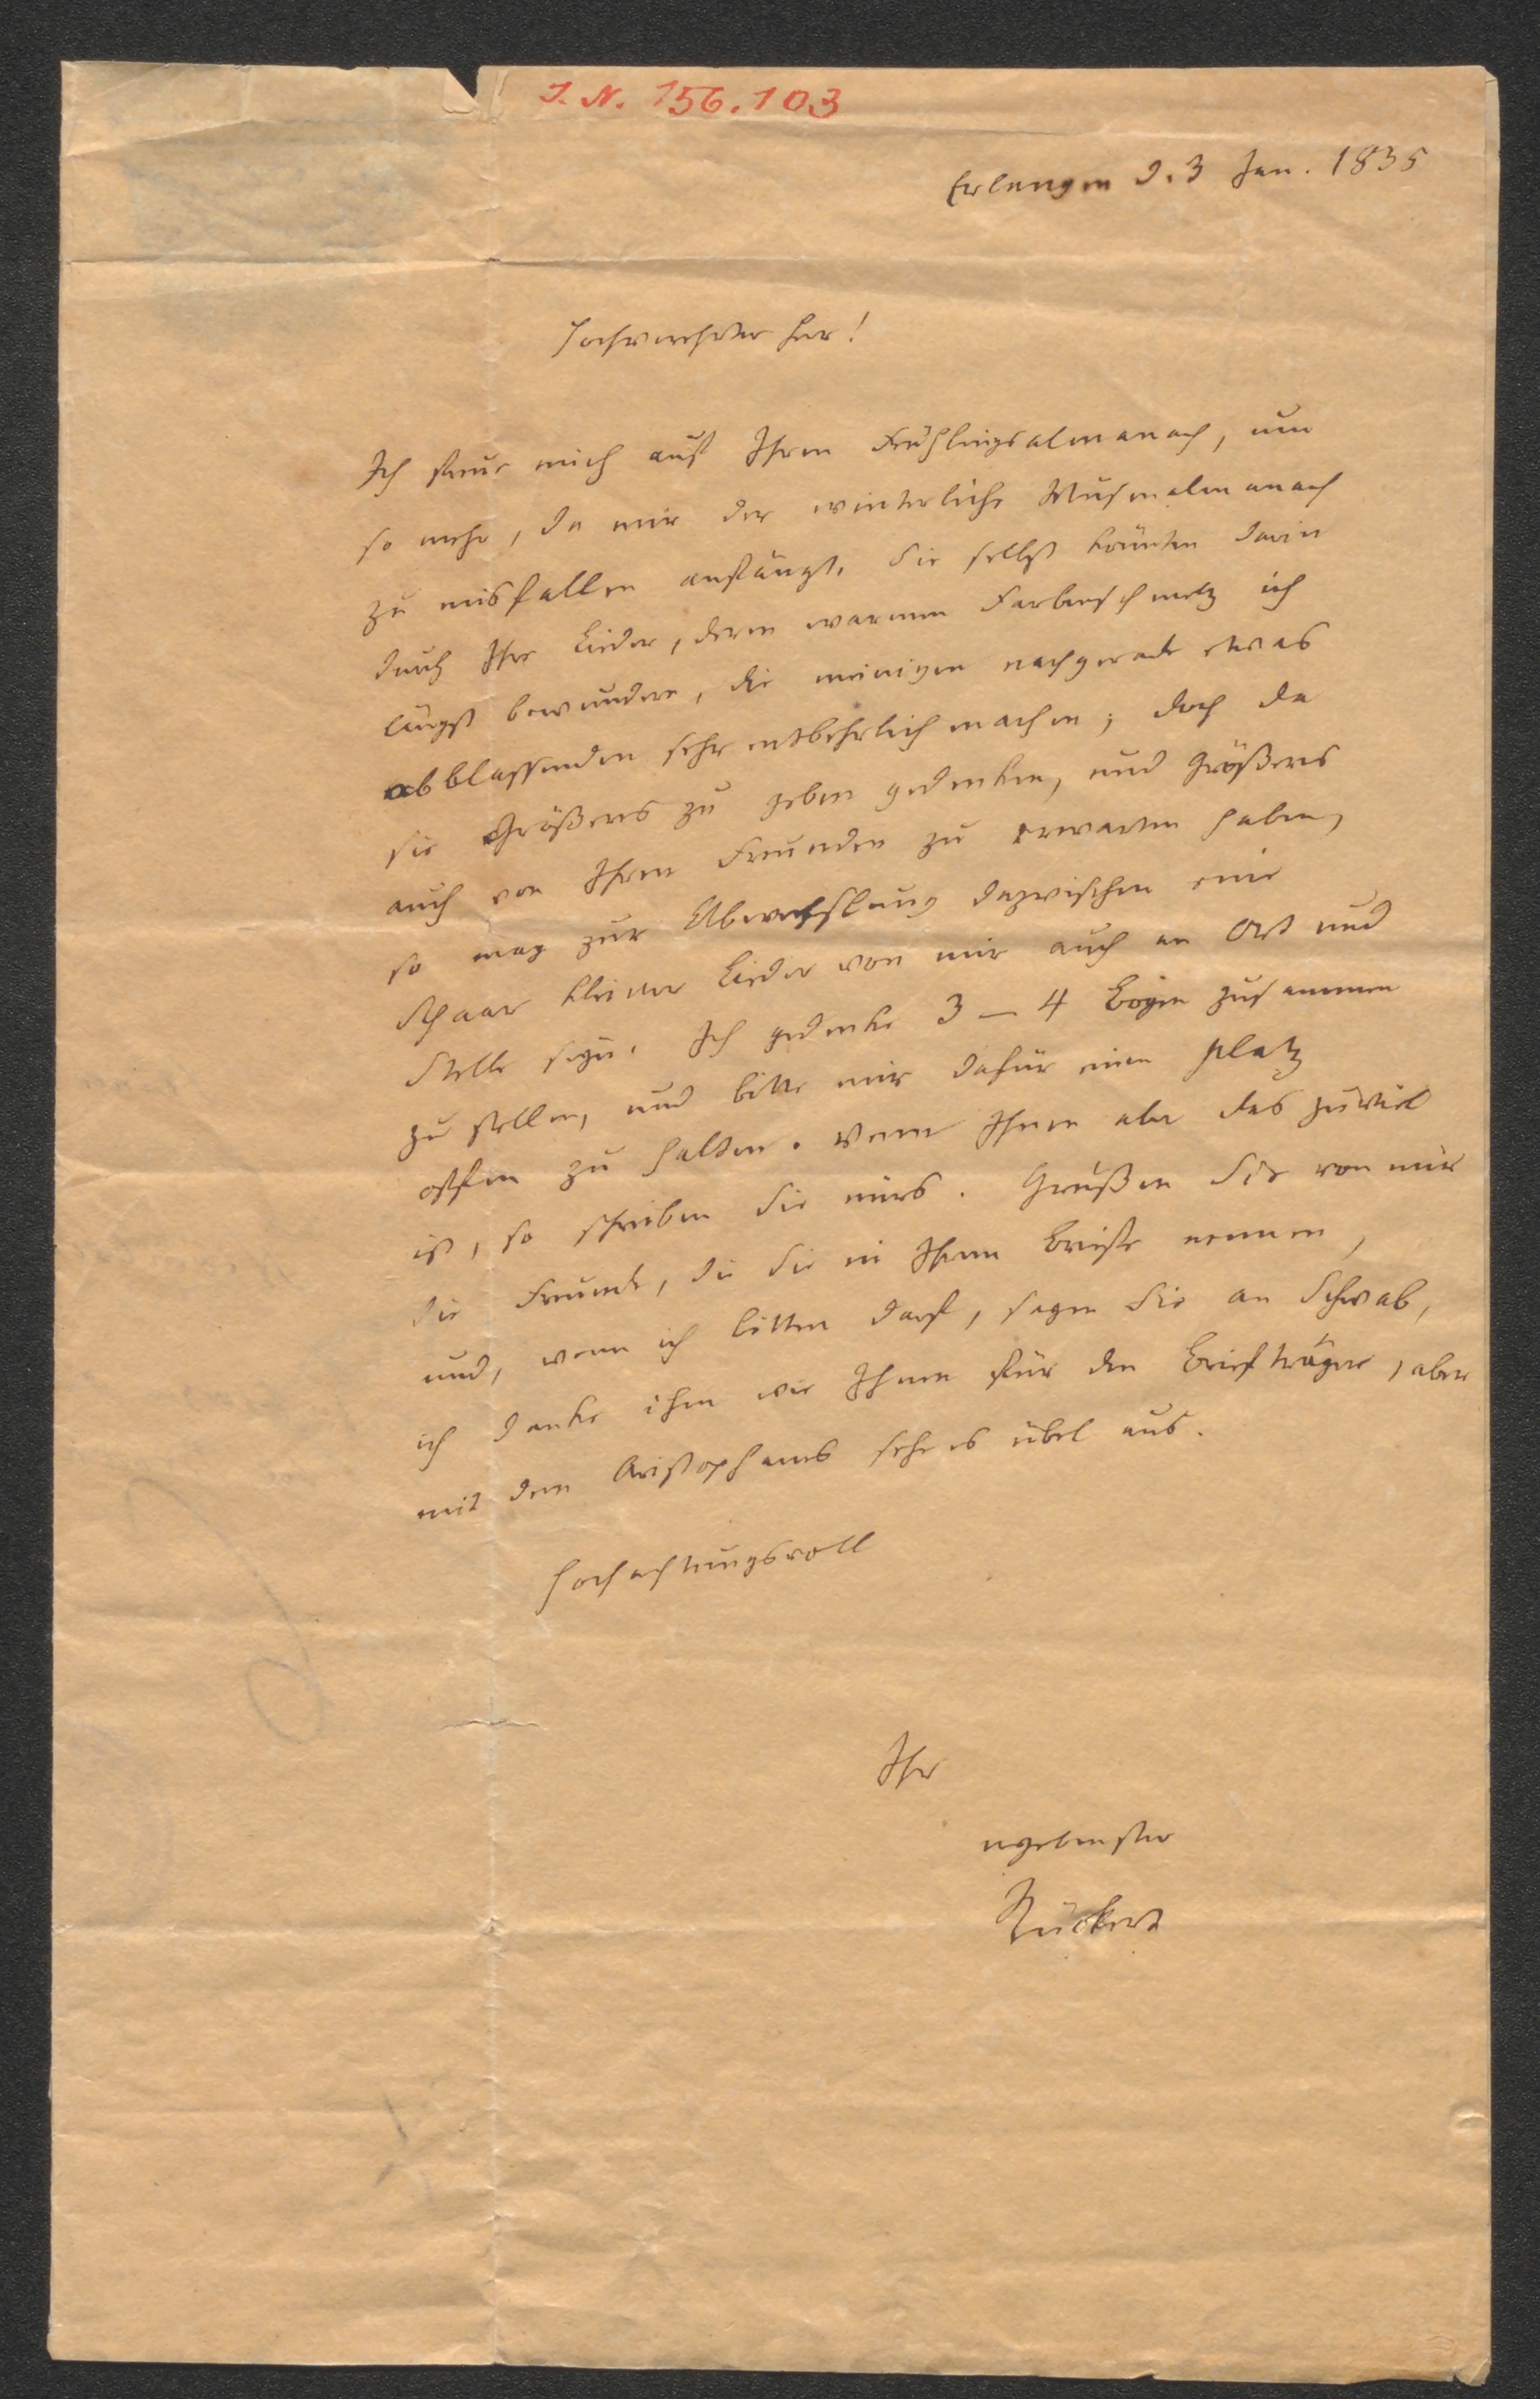 I. N. 156.103
Erlangen d. 3 Jan. 1835
Hochverehrter Herr!
Ich freue mich auf Ihren Frühlingsalmanach, um
so mehr, da mir der winterliche Musenalmanach
zu misfallen anfängt. Sie selbst könnten darin
durch Ihre Lieder, deren warmen Farbenschmelz ich
längst bewundere, die meinigen nachgerade etwas
abblassenden sehr entbehrlich machen; doch da
sie Größeres zu geben gedenken, und Größeres
auch von Ihren Freunden zu erwarten haben,
so mag zur Abwechslung dazwischen eine
Schaar kleiner Lieder von mir auch an Ort und
Stelle seyn. Ich gedenke 3 — 4 Bogen zusammen
zu stellen, und bitte mir dafür einen Platz
offen zu halten. Wenn Ihnen aber das zuviel
ist, so schreiben Sie mirs. Grüßen Sie von mir
die Freunde, die Sie in Ihrem Briefe nennen,
und, wenn ich bitten darf, sagen Sie an Schwab,
ich danke ihm wie Ihnen für den Briefträger, aber
mit dem Aristophanes sehe es übel aus.
Hochachtungsvoll
Ihr
ergebenster
Rückert